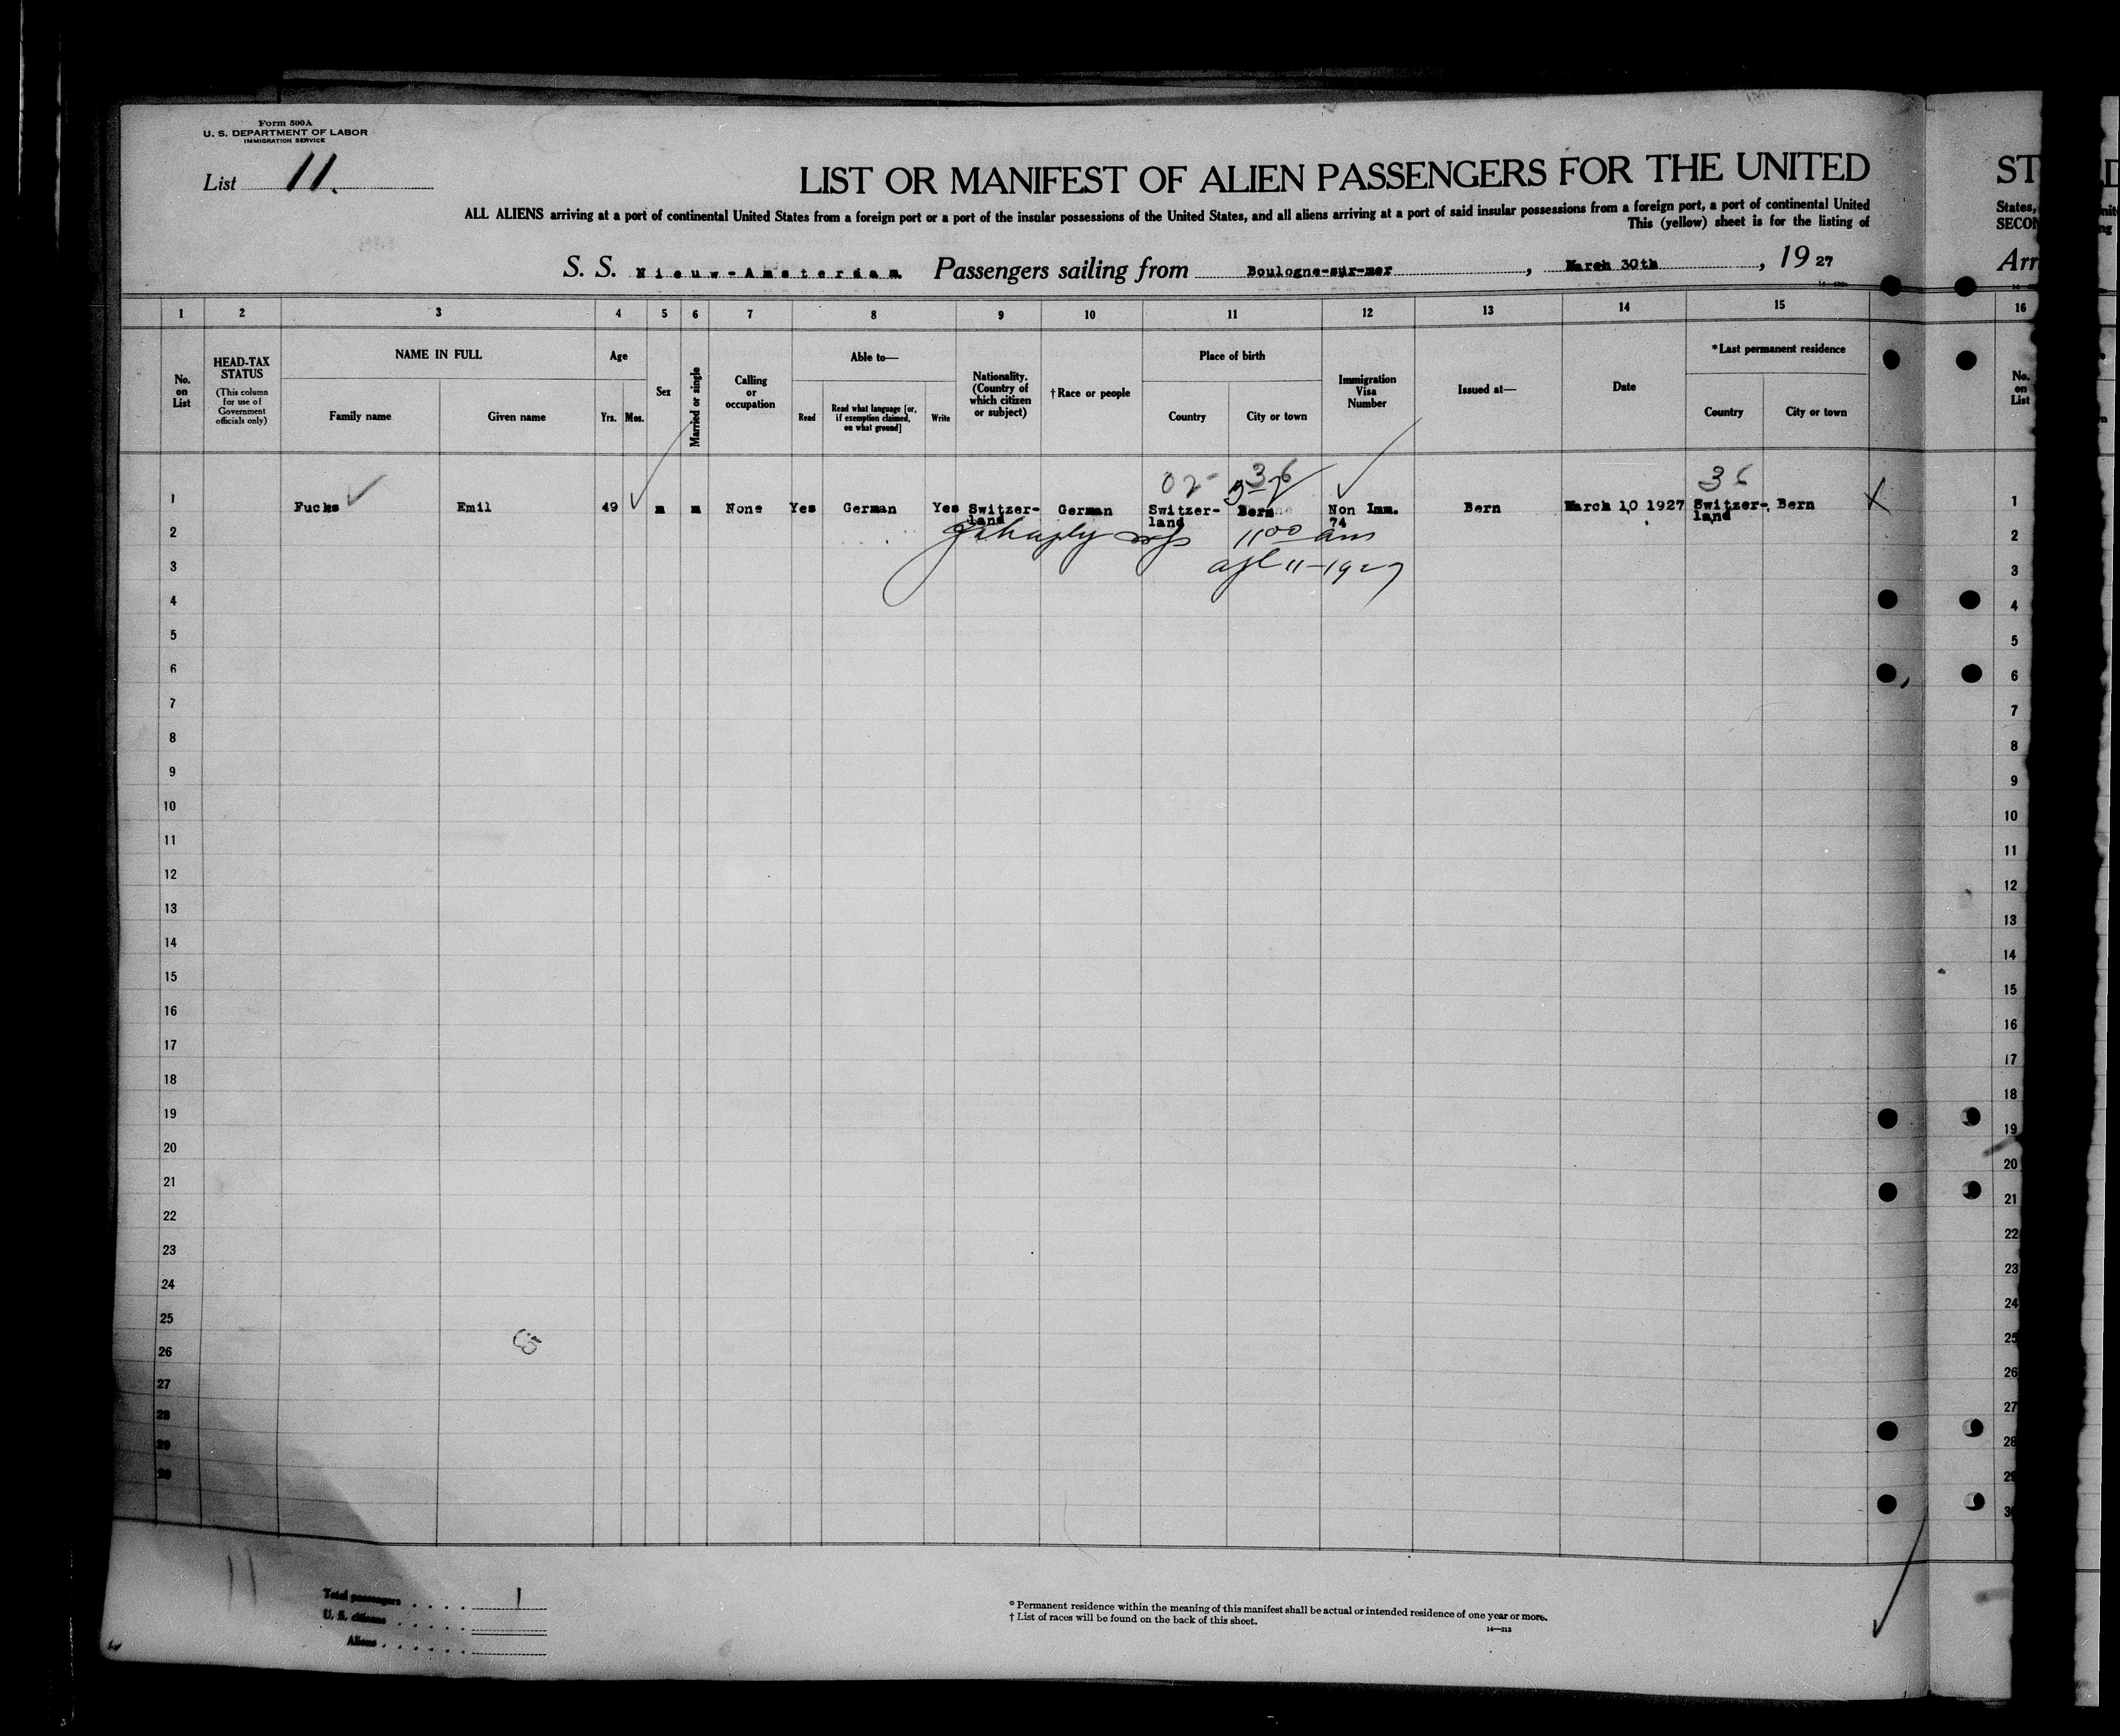 Form 500A
U. S. DEPARTMENT OF LABOR
IMMIGRATION SERVICE
List 11.
LIST OR MANIFEST OF ALIEN PASSENGERS FOR THE UNITED
ST
ALL ALIENS arriving at a port of continental United States from a foreign port or a port of the insular possessions of the United States, and all aliens arriving at a port of said insular possessions from a foreign port, a port of continental United
States,
This (yellow) sheet is for the listing of
SECON
S. S. Nieuw-Amsterdam Passengers sailing from Boulogne-sur-mer, March 30th, 19 27
Arr
1 2 3 4 5 6 7 8 9 10 11 12 13 14 15 16
No. on List
HEAD-TAX STATUS
(This column for use of Government officials only)
NAME IN FULL
Family name Given name
Age
Yrs. Mos.
Sex
Married or single
Calling or occupation
Able to—
Read
Read what language [or, if exemption claimed, on what ground]
Write
Nationality. (Country of which citizen or subject)
†Race or people
Place of birth
Country City or town
Immigration Visa Number
Issued at—
Date
*Last permanent residence
Country City or town
No. on List
36
36
1 Fuchs Emil 49 m m None Yes German Yes Switzer-land German Switzer-land Bern Non Imm. 74 Bern March 10 1927 Switzer-land Bern X 1
2 11 00 am 2
3 11-1927 3
4 4
5 5
6 6
7 7
8 8
9 9
10 10
11 11
12 12
13 13
14 14
15 15
16 16
17 17
18 18
19 19
20 20
21 21
22 22
23 23
24 24
25 25
26 26
27 27
28 28
29 29
30
11
Total passengers . . . . 1
U. S. citizens . . . . .
Aliens . . . . . .
* Permanent residence within the meaning of this manifest shall be actual or intended residence of one year or more.
† List of races will be found on the back of this sheet.
14—213